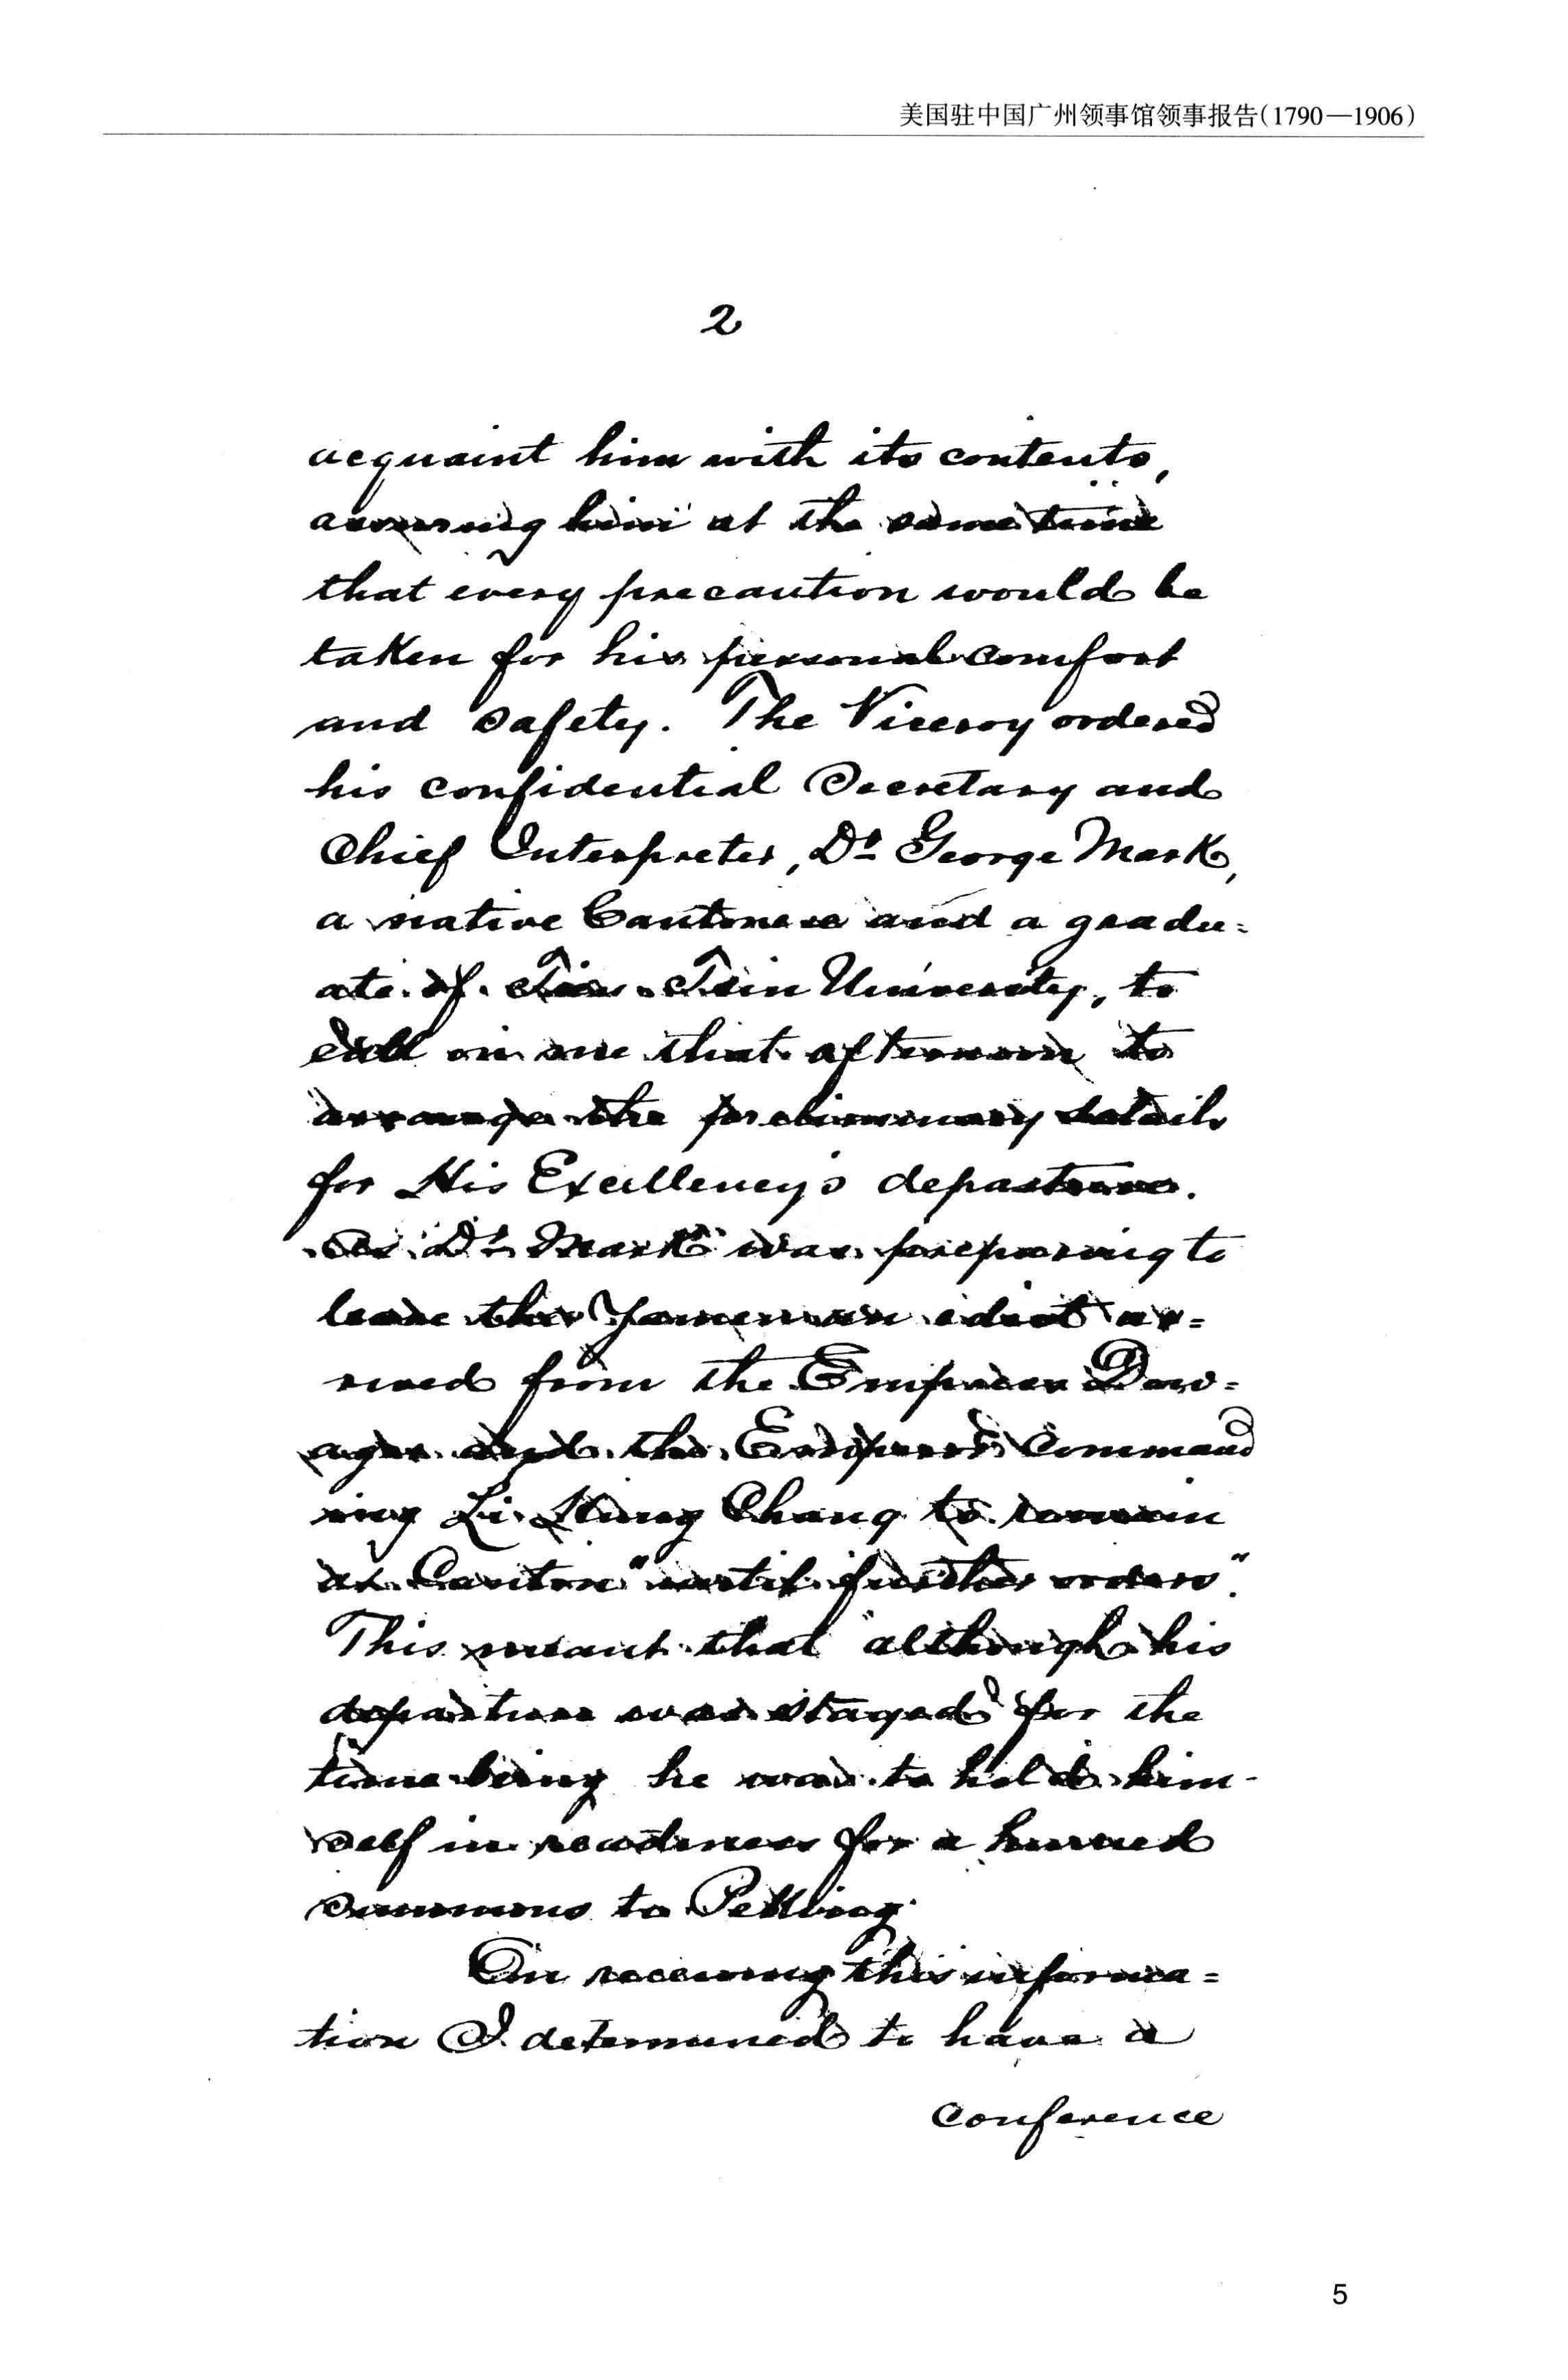 美国驻中国广州领事馆领事报告(1790—1906)
2
acquaint him with its contents,
assuring him at the same time
that every precaution would be
taken for his personal comfort
and safety. The Viceroy ordered
his confidential Secretary and
Chief Interpreter, Dr George Mark,
a native Cantonese and a gradu=
ate of Tien-Tsin University, to
call on me that afternoon to
arrange the preliminary details
for His Excellency's departure.
As Dr Mark was preparing to
leave the Yamen an edict ar=
rived from the Empress Dow=
ager and the Emperor command
ing Li Hung Chang to remain
at Canton "until further orders".
This meant that although his
departure was stayed for the
time being he was to hold him-
self in readiness for a hurried
summons to Peking.
On receiving this informa=
tion I determined to have a
conference
5